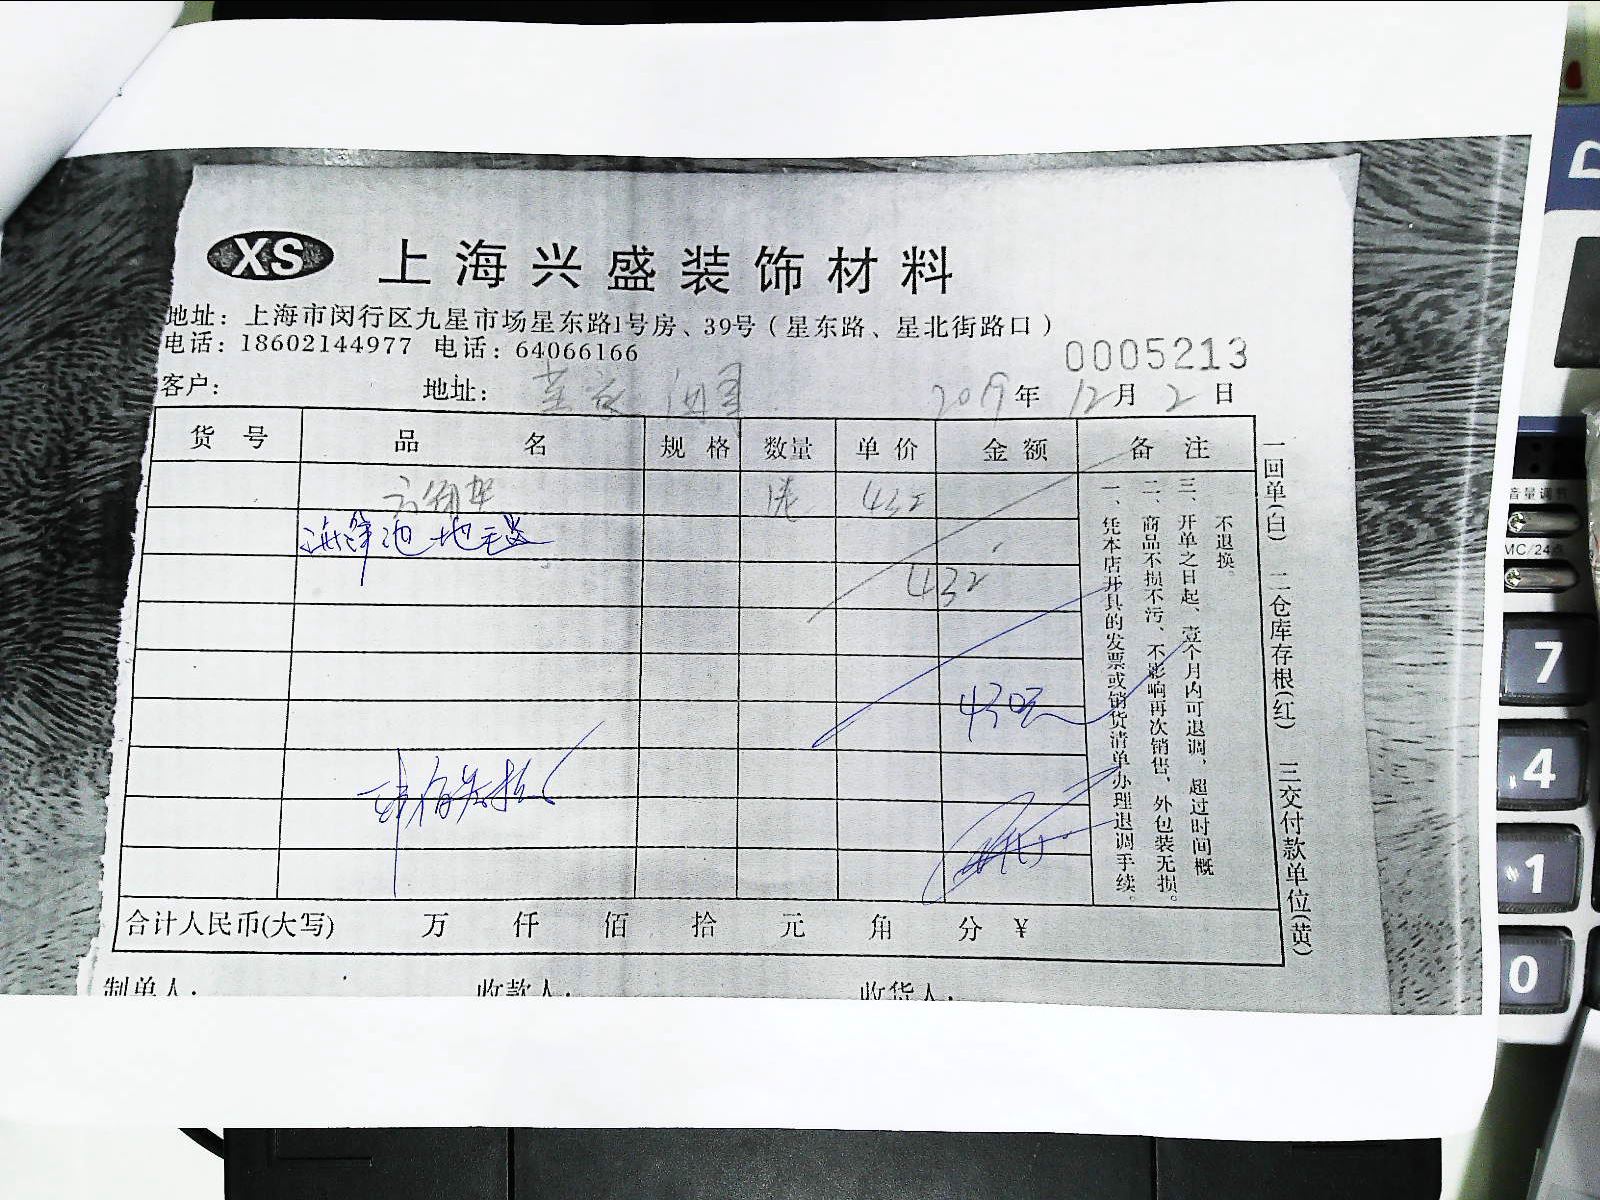 XS 上海兴盛装饰材料
地址：上海市闵行区九星市场星东路1号房、39号（星东路、星北街路口）
电话：18602144977 电话：64066166
0005213
客户： 地址： 2019年12月2日
货号 品名 规格 数量 单价 金额 备注
432
海洋池地毯
432
430元
三、开单之日起、壹个月内可退调，超过时间概不退换。
二、商品不损不污、不影响再次销售，外包装无损。
一、凭本店开具的发票或销货清单办理退调手续。
合计人民币(大写) 万 仟 佰 拾 元 角 分 ¥
制单人： 收款人： 收货人：
一回单(白) 二仓库存根(红) 三交付款单位(黄)
音量调节
MC/24点
7
4
1
0